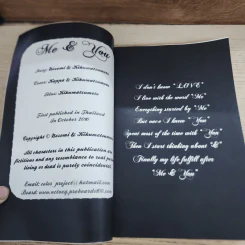 Me & You
Story: Hozomi & Hikumatsunoin
Cover: Kappa & Hikumatsunoin
Also: Hikumatsunoin
First published in Thailand
In October 2010
Copyright © Hozomi & Hikumatsunoin
All characters in this publication are
fictitious and any resemblance to real person
living or dead is purely coincidence
Email: color_project@hotmail.com
I don't know "LOVE"
I live with the word "Me"
Everything started by "Me"
But once I knew "You"
Spent most of the time with "You"
Then I start thinking about "&"
Finally my life fulfill after
"Me & You"